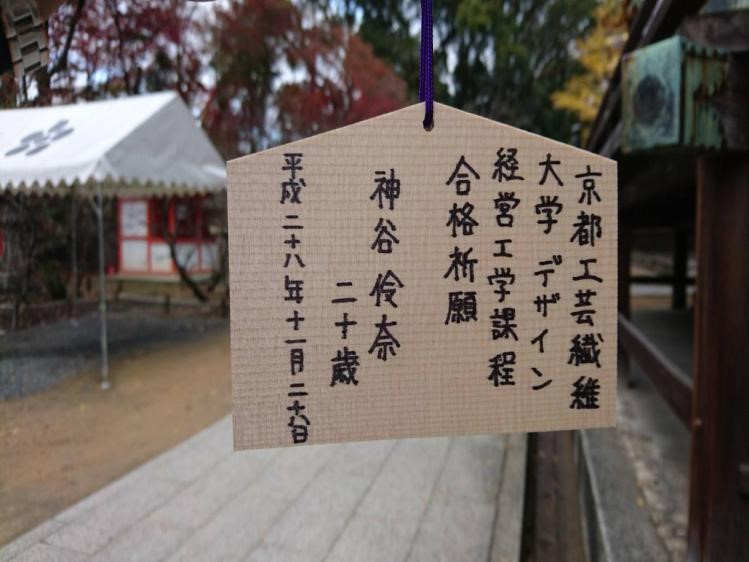 京都工芸繊維
大学デザイン
経営工学課程
合格祈願
神谷伶奈
二十歳
平成二十八年十一月二十八日